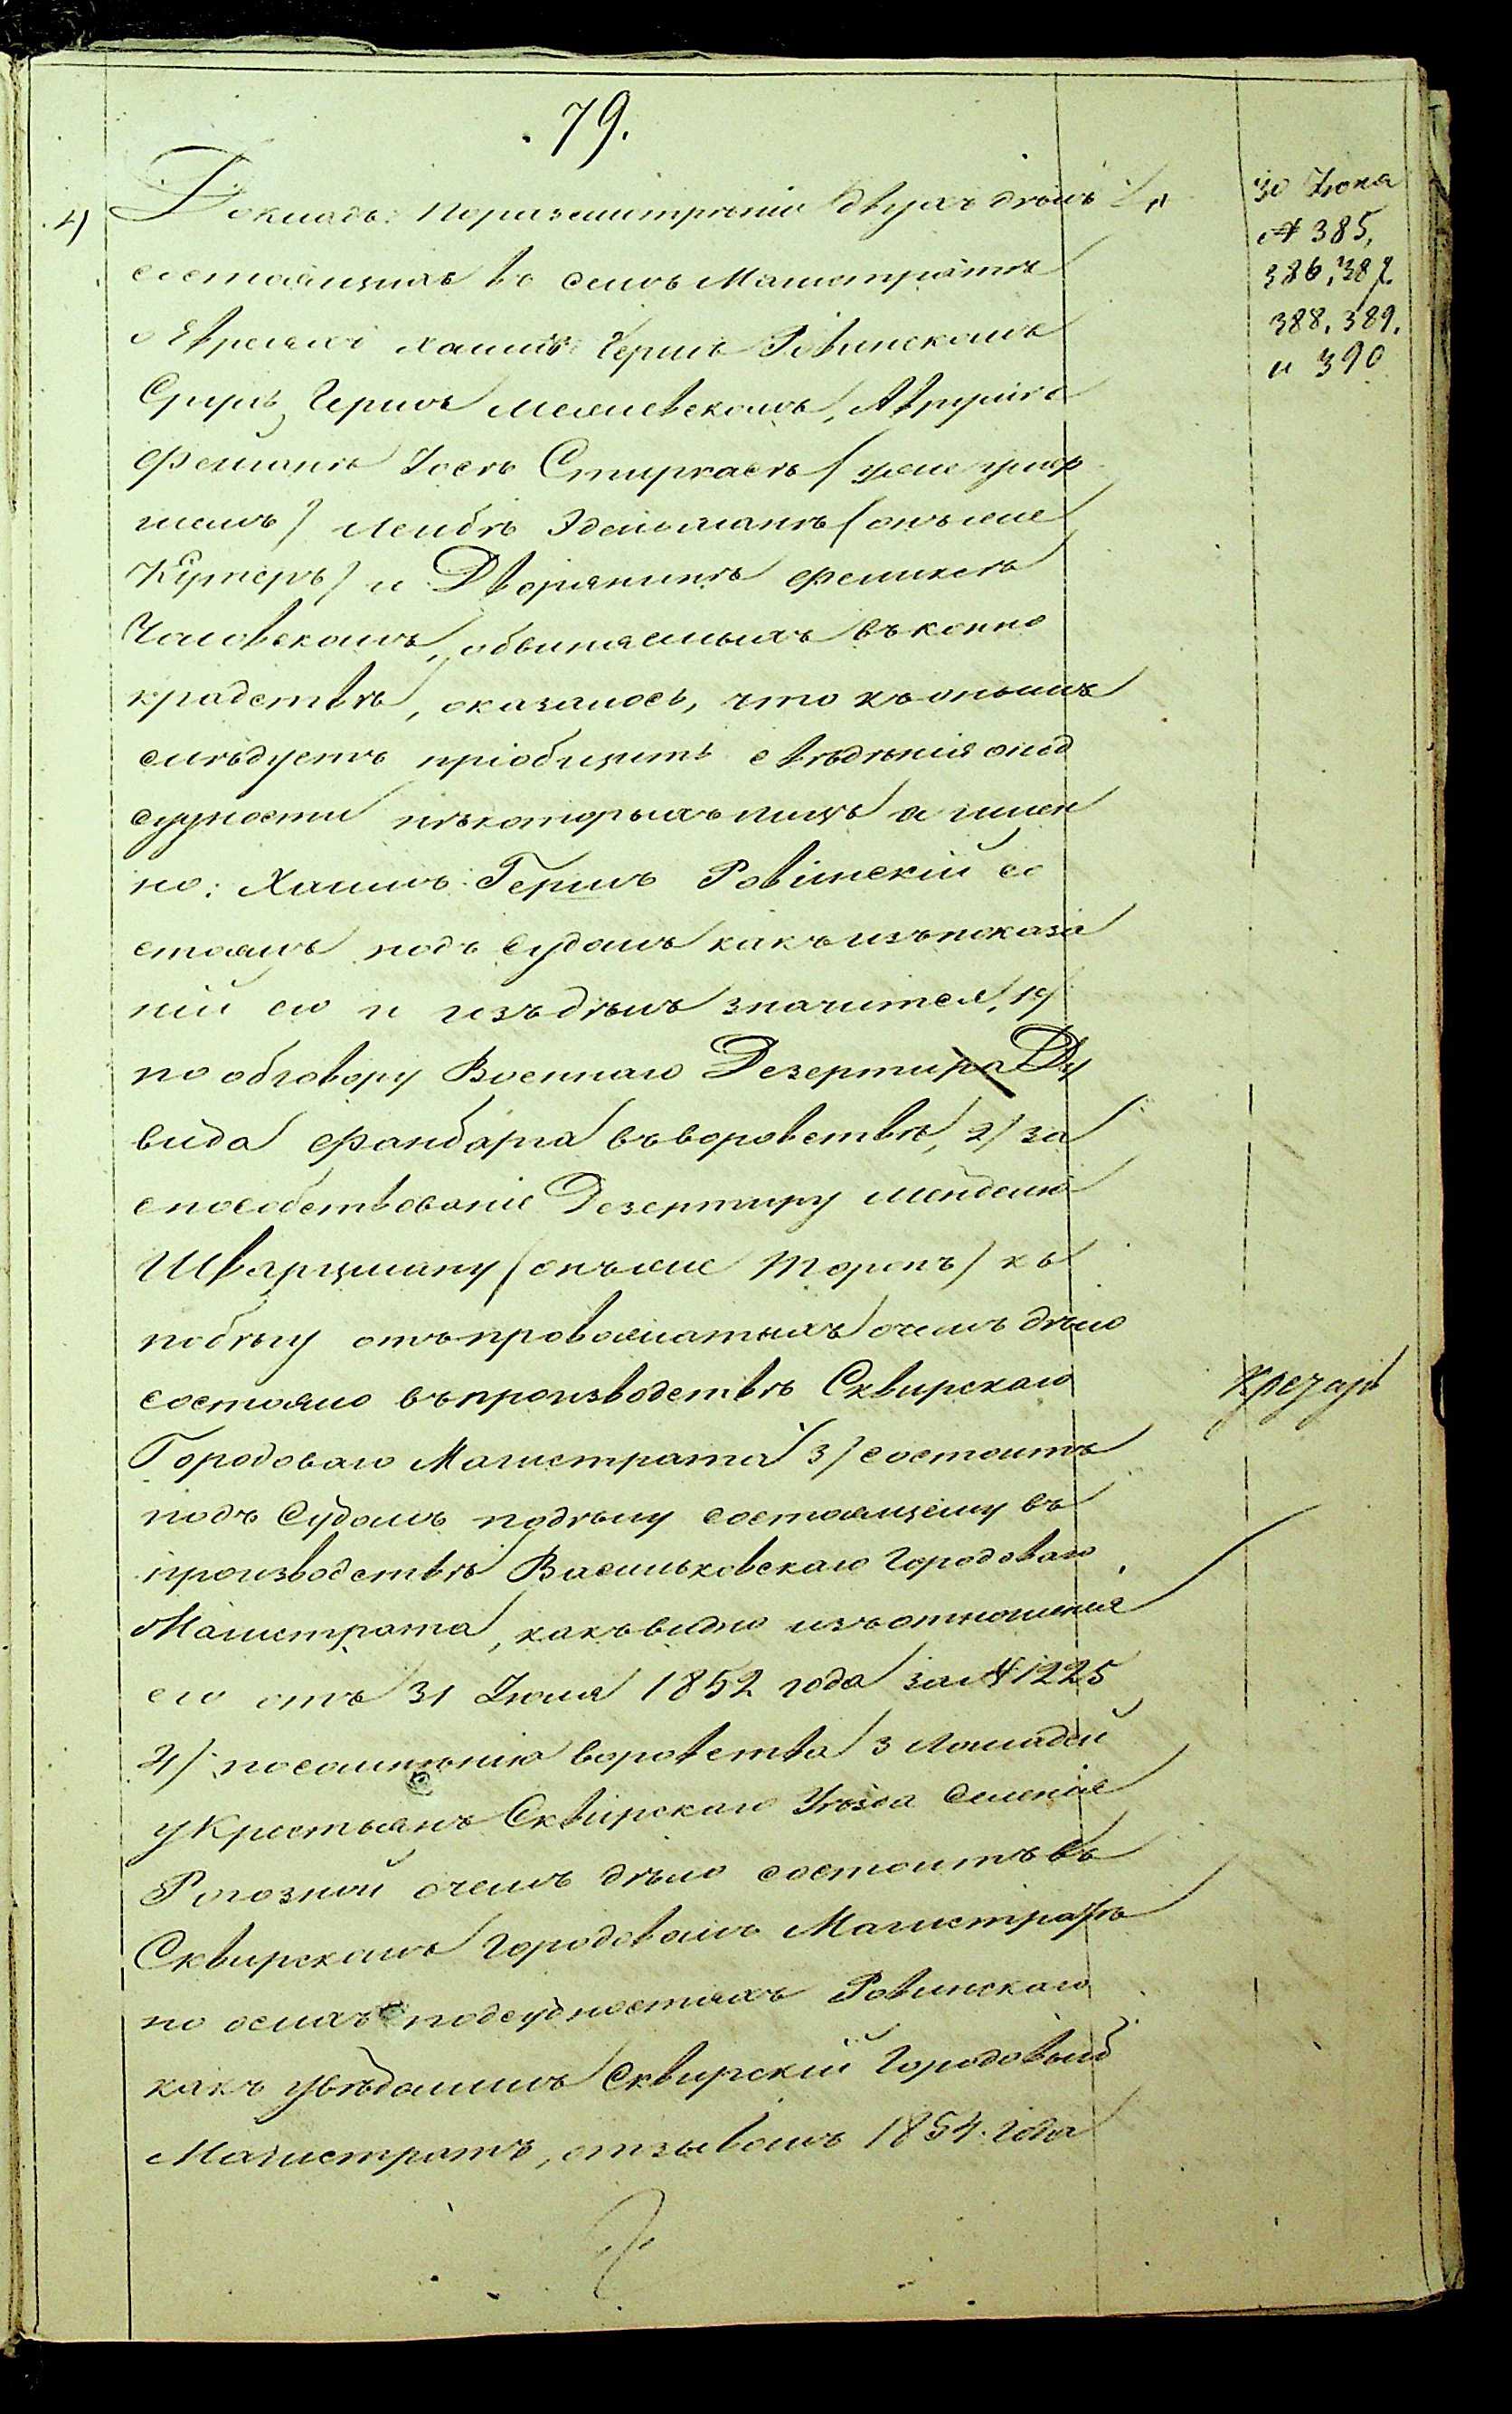 79.
4) Докладъ: поразсмитрѣнію двухъ дѣлъ
состоящихъ въ семъ Магистратѣ
о Евреяхъ Хаимѣ Гершъ Ровинскомъ
Сруль Гершъ, Авруме
Фельманѣ Іосѣ Стиркасѣ (уже умер
шемъ) Лейбѣ Эдельманѣ (онъ же
Кутеръ) и Дворянинѣ Феликсѣ
Чаловскомъ, обвиняемыхъ въ конно
крадствѣ, оказалось, что къ онымъ
слѣдуетъ пріобщить свѣдѣнія опод
судности нѣкоторыхъ лицъ а имен
но: Хаимъ: Гершъ Ровинскій со
стоялъ подъ судомъ какъ изъ показа
ній его и изъ дѣлъ значится, 1)
по обговору Военнаго Дезертира Ду
вида Фанбарга въ воровствѣ, 2) за
способствованіе Дезертиру Менделю
Шварцману (онъ же Торонъ) къ
побѣгу отъ провожатыхъ очемъ дѣло
состояло въ производствѣ Сквирскаго
Городоваго Магистрата 3) состоитъ
подъ Судомъ подѣлу состоящему въ
производствѣ Васильковскаго Городоваго
Магистрата, какъ видно изъ отношенія
его отъ 31 Июля 1852 года за № 1225
4) посомнѣнію воровства 3 лошадей
у Крестьянъ Сквирскаго Уѣзда Селенія
Рогозной очемъ дѣло состоитъ въ
Сквирскомъ Городовомъ Магистратѣ
по всѣмъ подсудностямъ Ровинскаго
какъ увѣдомилъ Сквирскій Городовый
Магистратъ, отзывомъ 1854. года
30 Июня
№ 385,
386, 387.
388. 389.
и 390